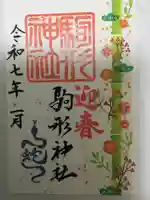 駒形
神社
迎春
駒形神社
令和七年一月